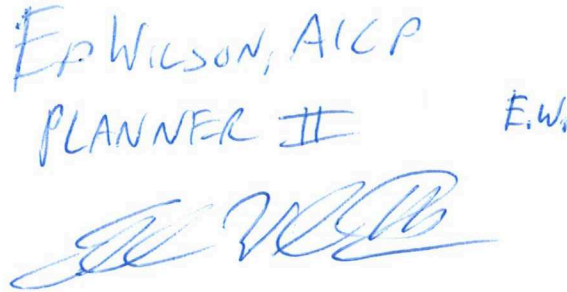 ED WILSON, AICP
PLANNER II
E.W.